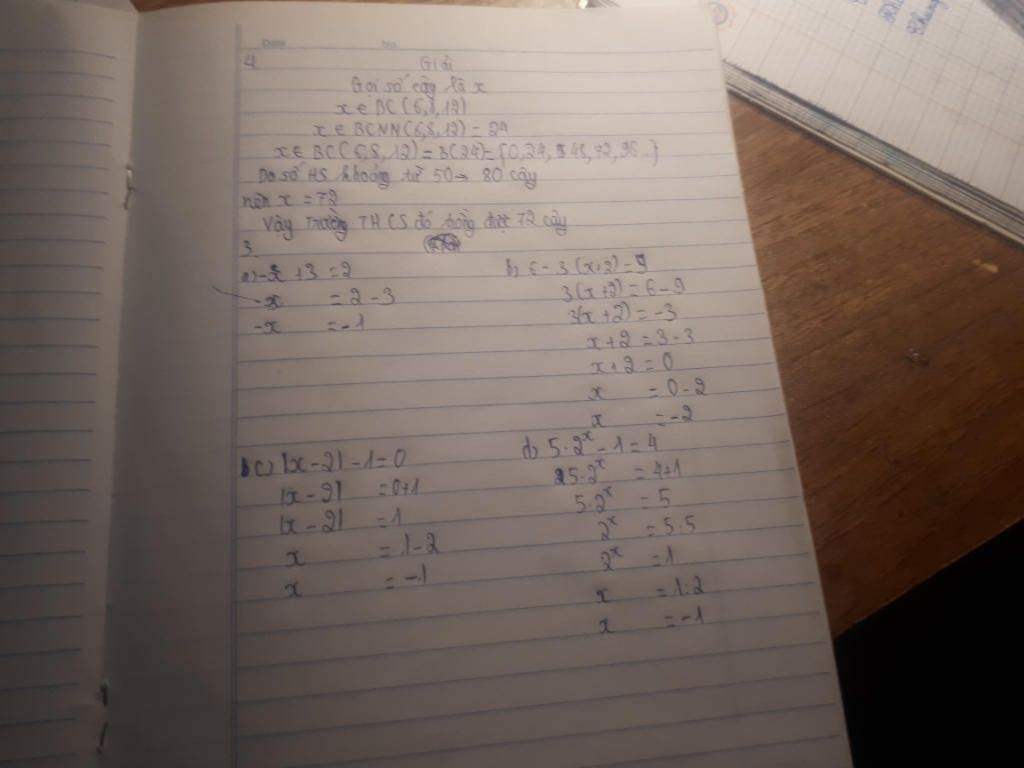 Date No.
4
Giải
Gọi số cây là x
x ∈ BC(6,8,12)
x ∈ BCNN(6,8,12) = 24
x ∈ BC(6,8,12) = B(24) = {0,24,48,72,96...}
Do số HS khoảng từ 50 → 80 cây
nên x = 72
Vậy trường THCS đó trồng được 72 cây
3.
a) -x + 3 = 2
-x = 2 - 3
-x = -1
b) 6 - 3(x+2) = 9
3(x+2) = 6 - 9
3(x+2) = -3
x+2 = 3-3
x+2 = 0
x = 0-2
x = -2
c) |x-2| - 1 = 0
|x-2| = 0+1
|x-2| = 1
x = 1-2
x = -1
d) 5.2ˣ - 1 = 4
5.2ˣ = 4+1
5.2ˣ = 5
2ˣ = 5.5
2ˣ = 1
x = 1.2
x = -1